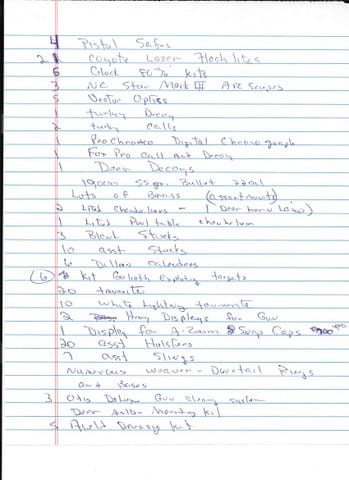 4 Pistol Safes
2 Coyote Lazer Flash lites
6 Glock 80% Kits
3 NC Star Mark III ARC Scopes
5 Vector Optics
1 turkey Decoy
2 turky calls
1 ProChrono Digital Chronograph
1 Fox Pro Call and Decoy
1 Deer Decoys
55 gr. Bullet 22cal
Lots of (assortments)
2 Lited - 1 Deer horn
1 Lited Pool table
3 Blank Stocks
10 asst Stocks
6 Dillon calendars
(6) Kit Goliath Exploding targets
20 tannerite
10 White Lightning
2 Heny Displays for Gun
1 Display for A-Zoom Snap Caps
20 asst Holsters
7 asst Slings
Numerous weaver - Dovetail Rings
and Bases
3 Otis Deluxe Gun Cleaning system
Deer Antler Mounting Kit
5 Kit